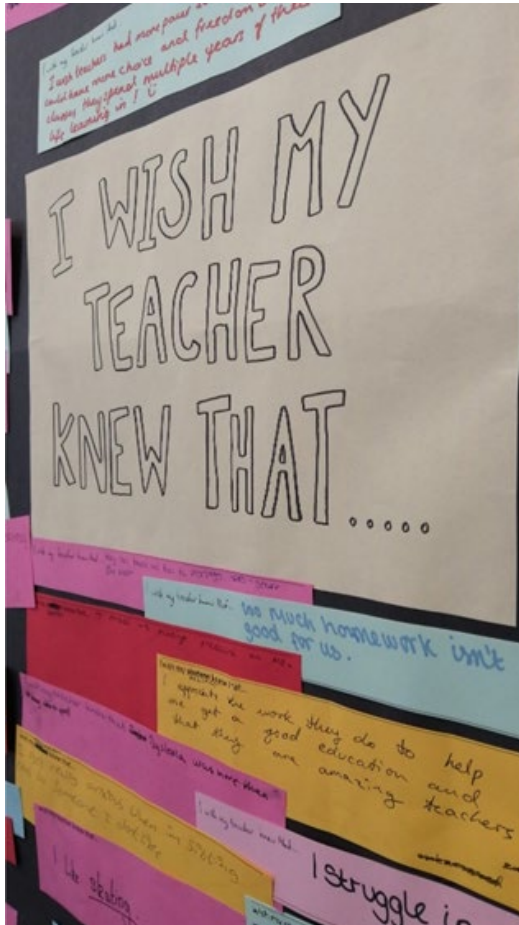 I wish my teacher knew that...
I wish teachers had more power
could have more choice and freedom
classes they spend multiple years of their
life learning in! :)
I WISH MY
TEACHER
KNEW THAT.....
I wish my teacher knew that...
I wish my teacher knew that... too much homework isn't
good for us.
pressure on me.
I appreciate the work they do to help
me get a good education and
that they are amazing teachers
I wish my teacher knew that dyslexia was more than
really anxious when im sitting
someone I dont like
I wish my teacher knew that...
I struggle in
I like skating.